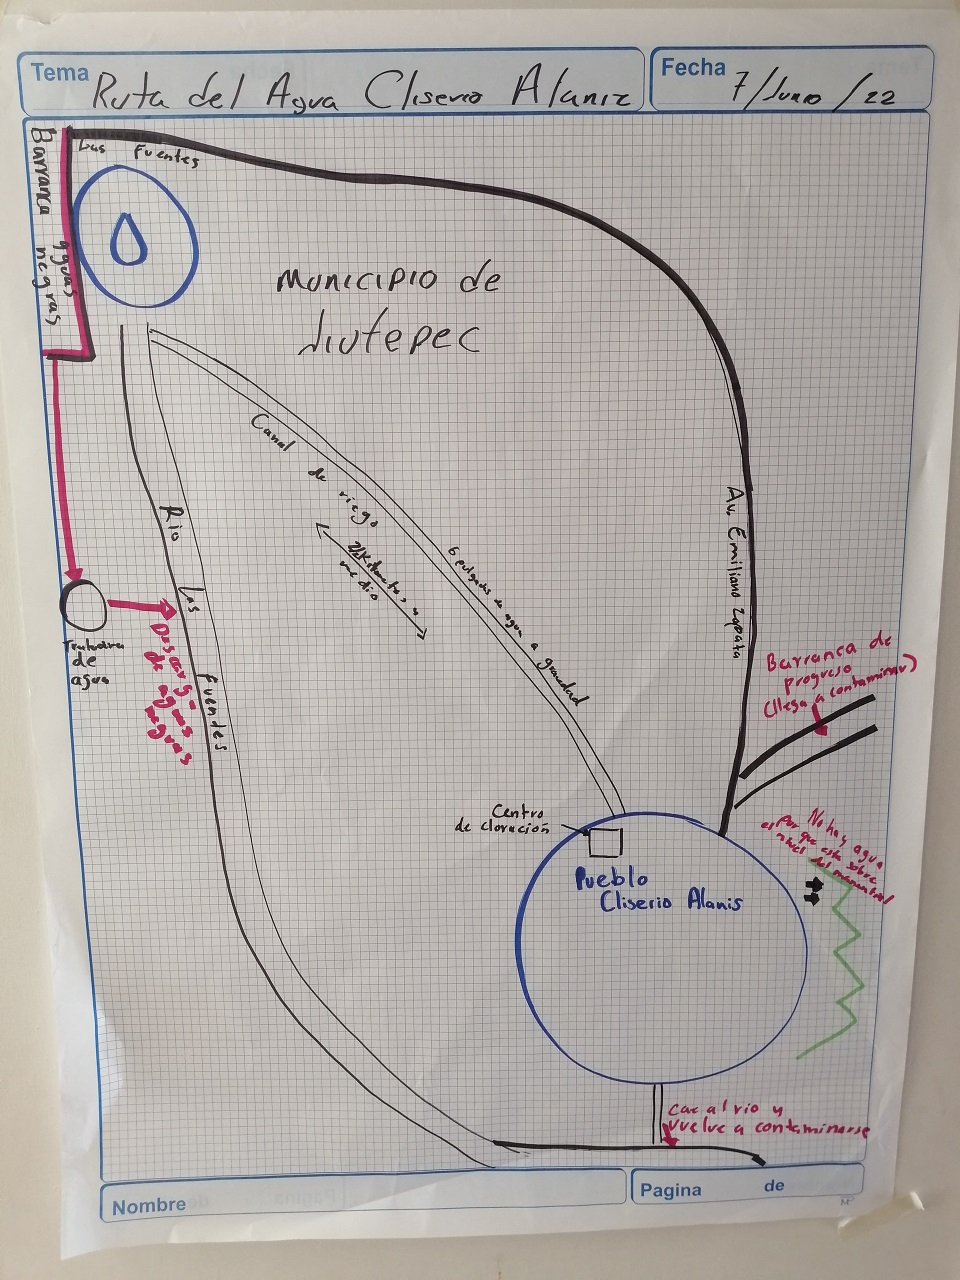 Tema Ruta del Agua Cliserio Alaniz
Fecha 7/Junio/22
Las Fuentes
Barranca
aguas
negras
Municipio de
Jiutepec
Canal de riego
kilometros y
medio
6 pulgadas de agua a gravedad
Av. Emiliano Zapata
Rio Las Fuentes
Tratadora
de
agua
Descarga
de aguas
negras
Barranca de
progreso
(llega a contaminar)
Centro
de cloración
Pueblo
Cliserio Alanis
No hay agua
por que esta sobre
el nivel del manantial
cae al rio y
vuelve a contaminarse
Nombre
Pagina de